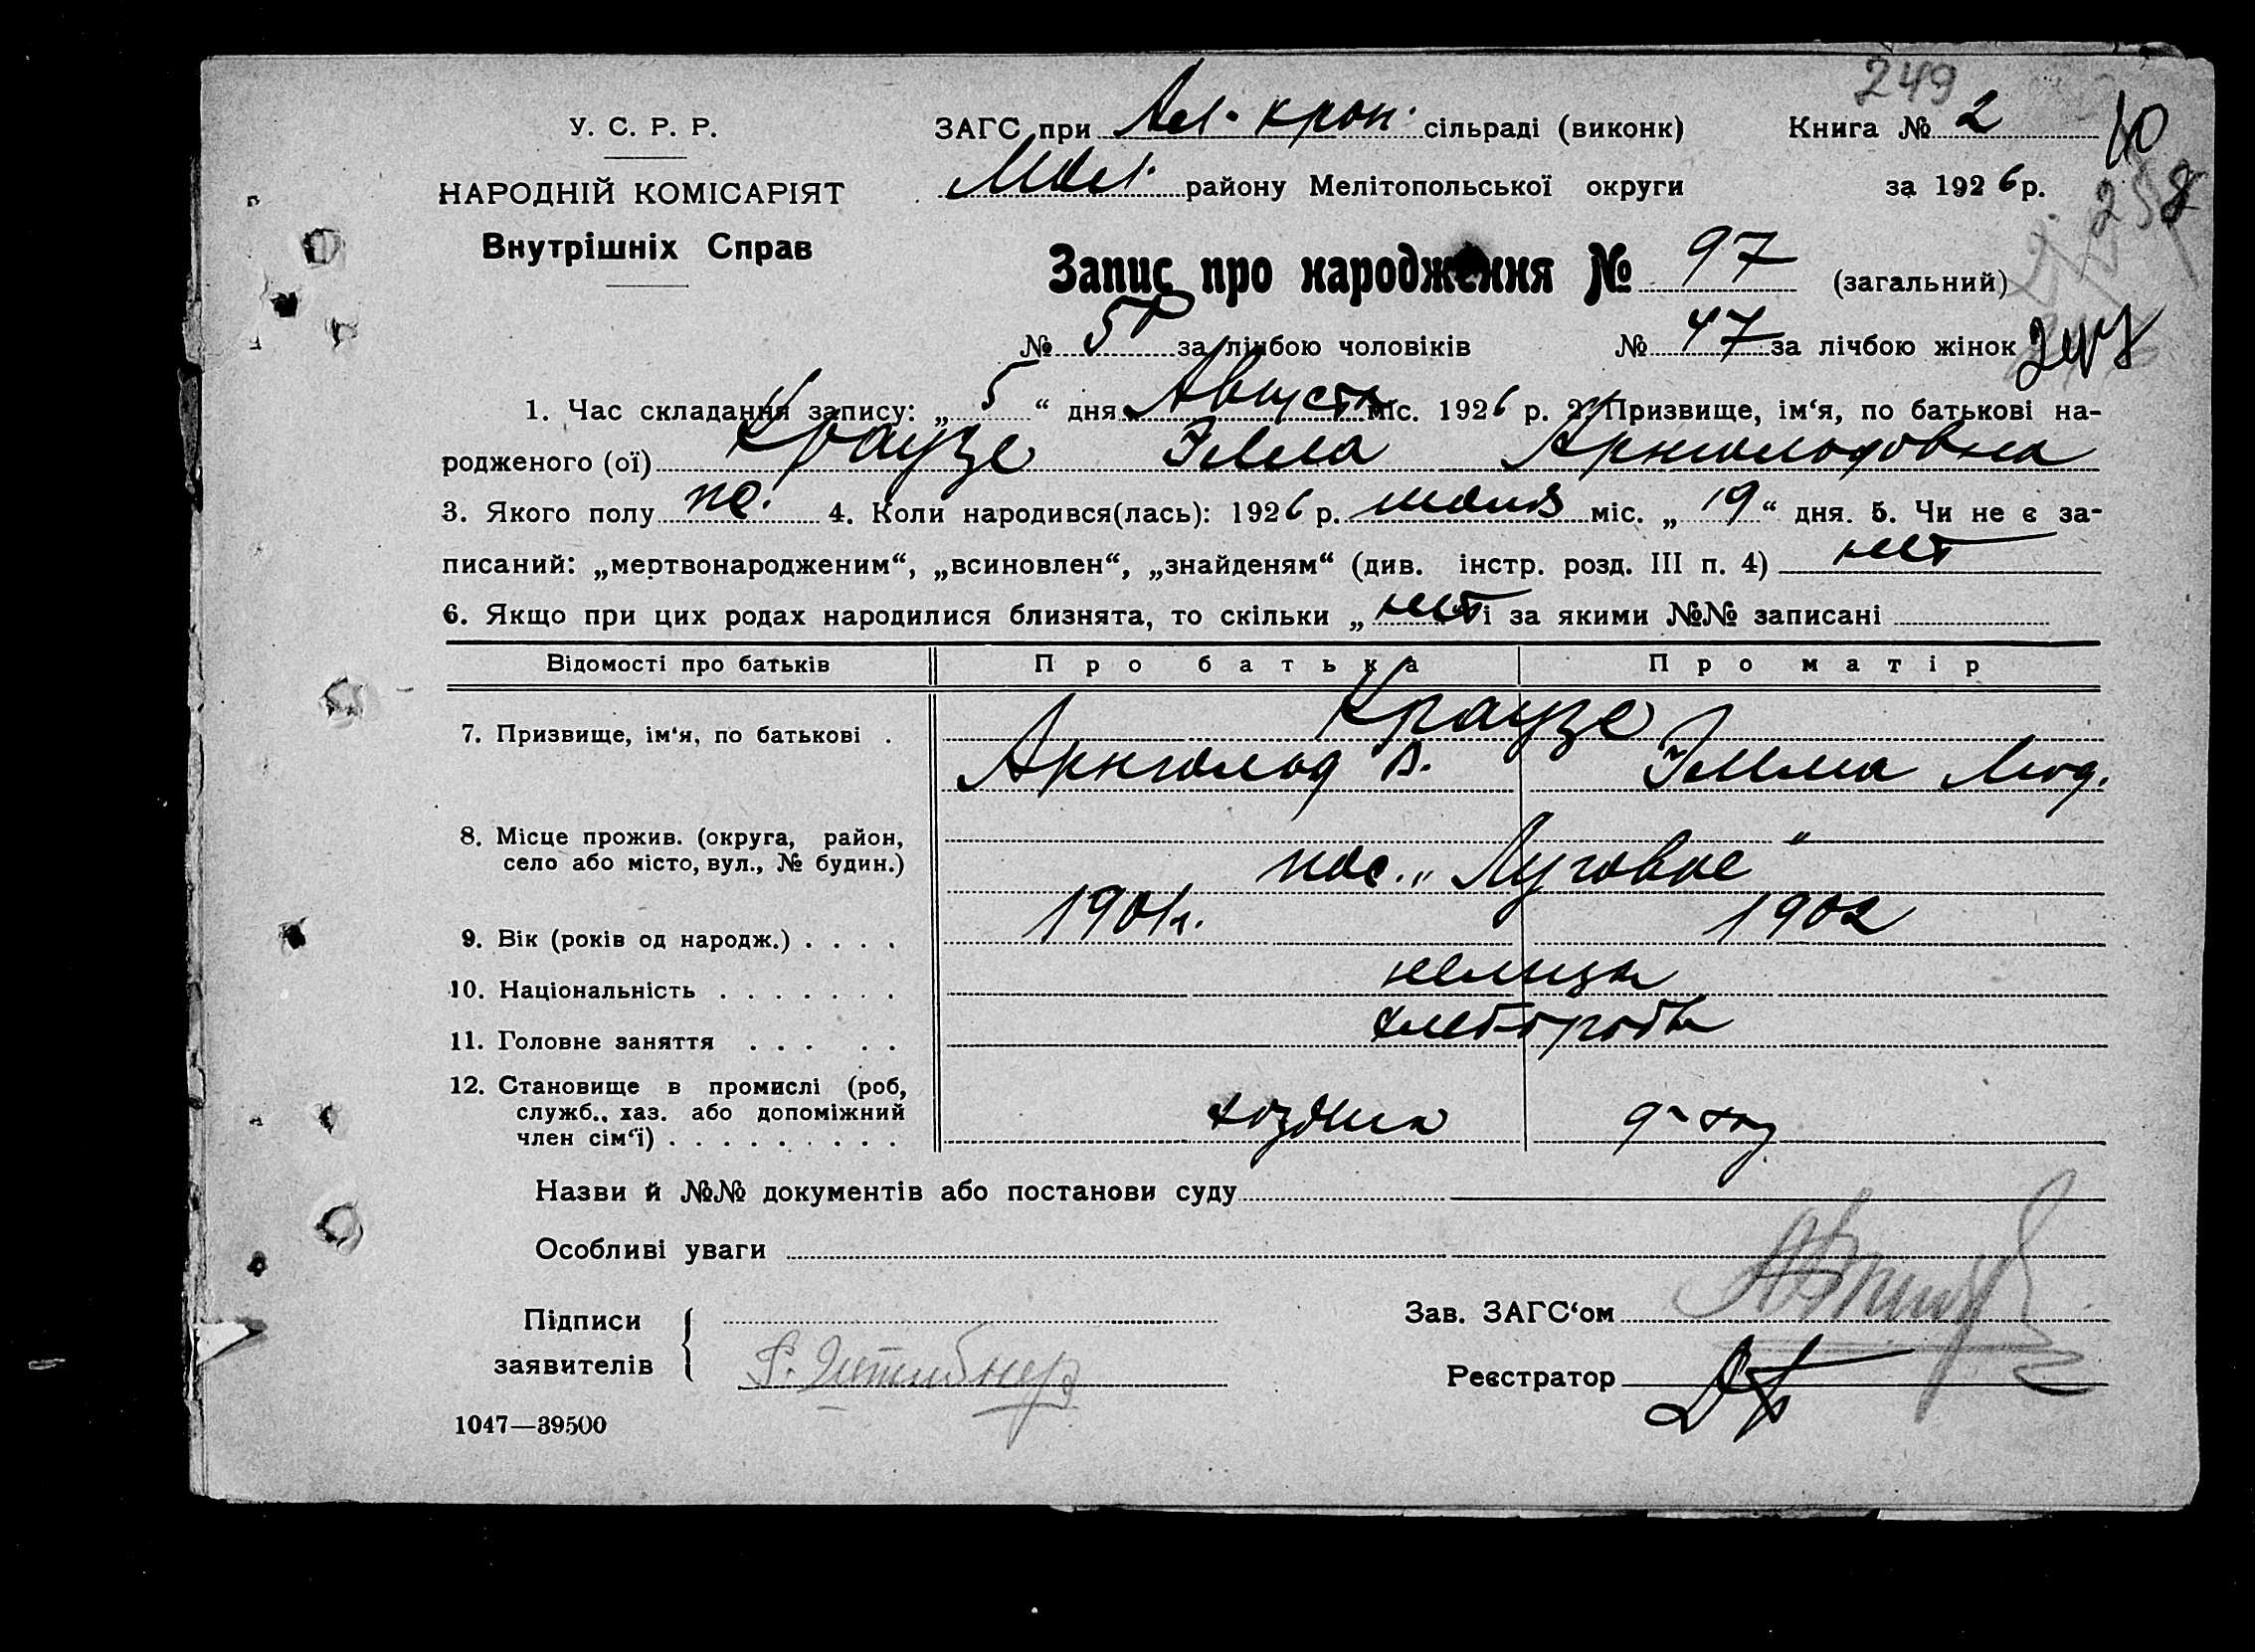 249
У. С. Р. Р.
ЗАГС при сільраді (виконк)
Книга № 2
10
НАРОДНІЙ КОМІСАРІЯТ
району Мелітопольської округи
за 1926 р.
Внутрішніх Справ
Запис про народження № 97 (загальний)
№ за лічбою чоловіків № 47 за лічбою жінок
1. Час складання запису: „ 5 “ дня Августа міс. 1926 р. 2. Призвище, ім‘я, по батькові на-
родженого (ої) Краузе Арнгольдовна
3. Якого полу 4. Коли народився(лась): 1926 р. міс. „ 19 “ дня. 5. Чи не є за-
писаний: „мертвонародженим“, „всиновлен“, „знайденям“ (див. інстр. розд. III п. 4) нет
6. Якщо при цих родах народилися близнята, то скільки „ нет і за якими №№ записані
Відомості про батьків Про батька Про матір
7. Призвище, ім‘я, по батькові . Краузе
Арнгольд
8. Місце прожив. (округа, район,
село або місто, вул., № будин.) пос. „Луговое“
9. Вік (років од народж.) . . . . 1901 г. 1902
10. Національність . . . . . . . немцы
11. Головне заняття . . . . . хлеборобы
12. Становище в промислі (роб,
служб., хаз. або допоміжний
член сім‘ї) . . . . . . . . . .
Назви й №№ документів або постанови суду
Особливі уваги
Підписи
заявителів
Зав. ЗАГС‘ом
Реєстратор
1047—39500